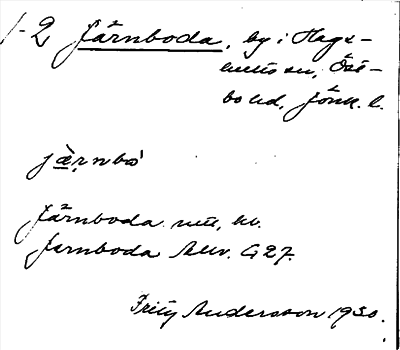 1-2 Järnboda, by i Hags-
hults sn, Öst-
bo hd, Jönk. l.
jæ̀ṛnbò
Järnboda mtl, kb.
Jernboda Alev. G 27.
Fritz Andersson 1930.